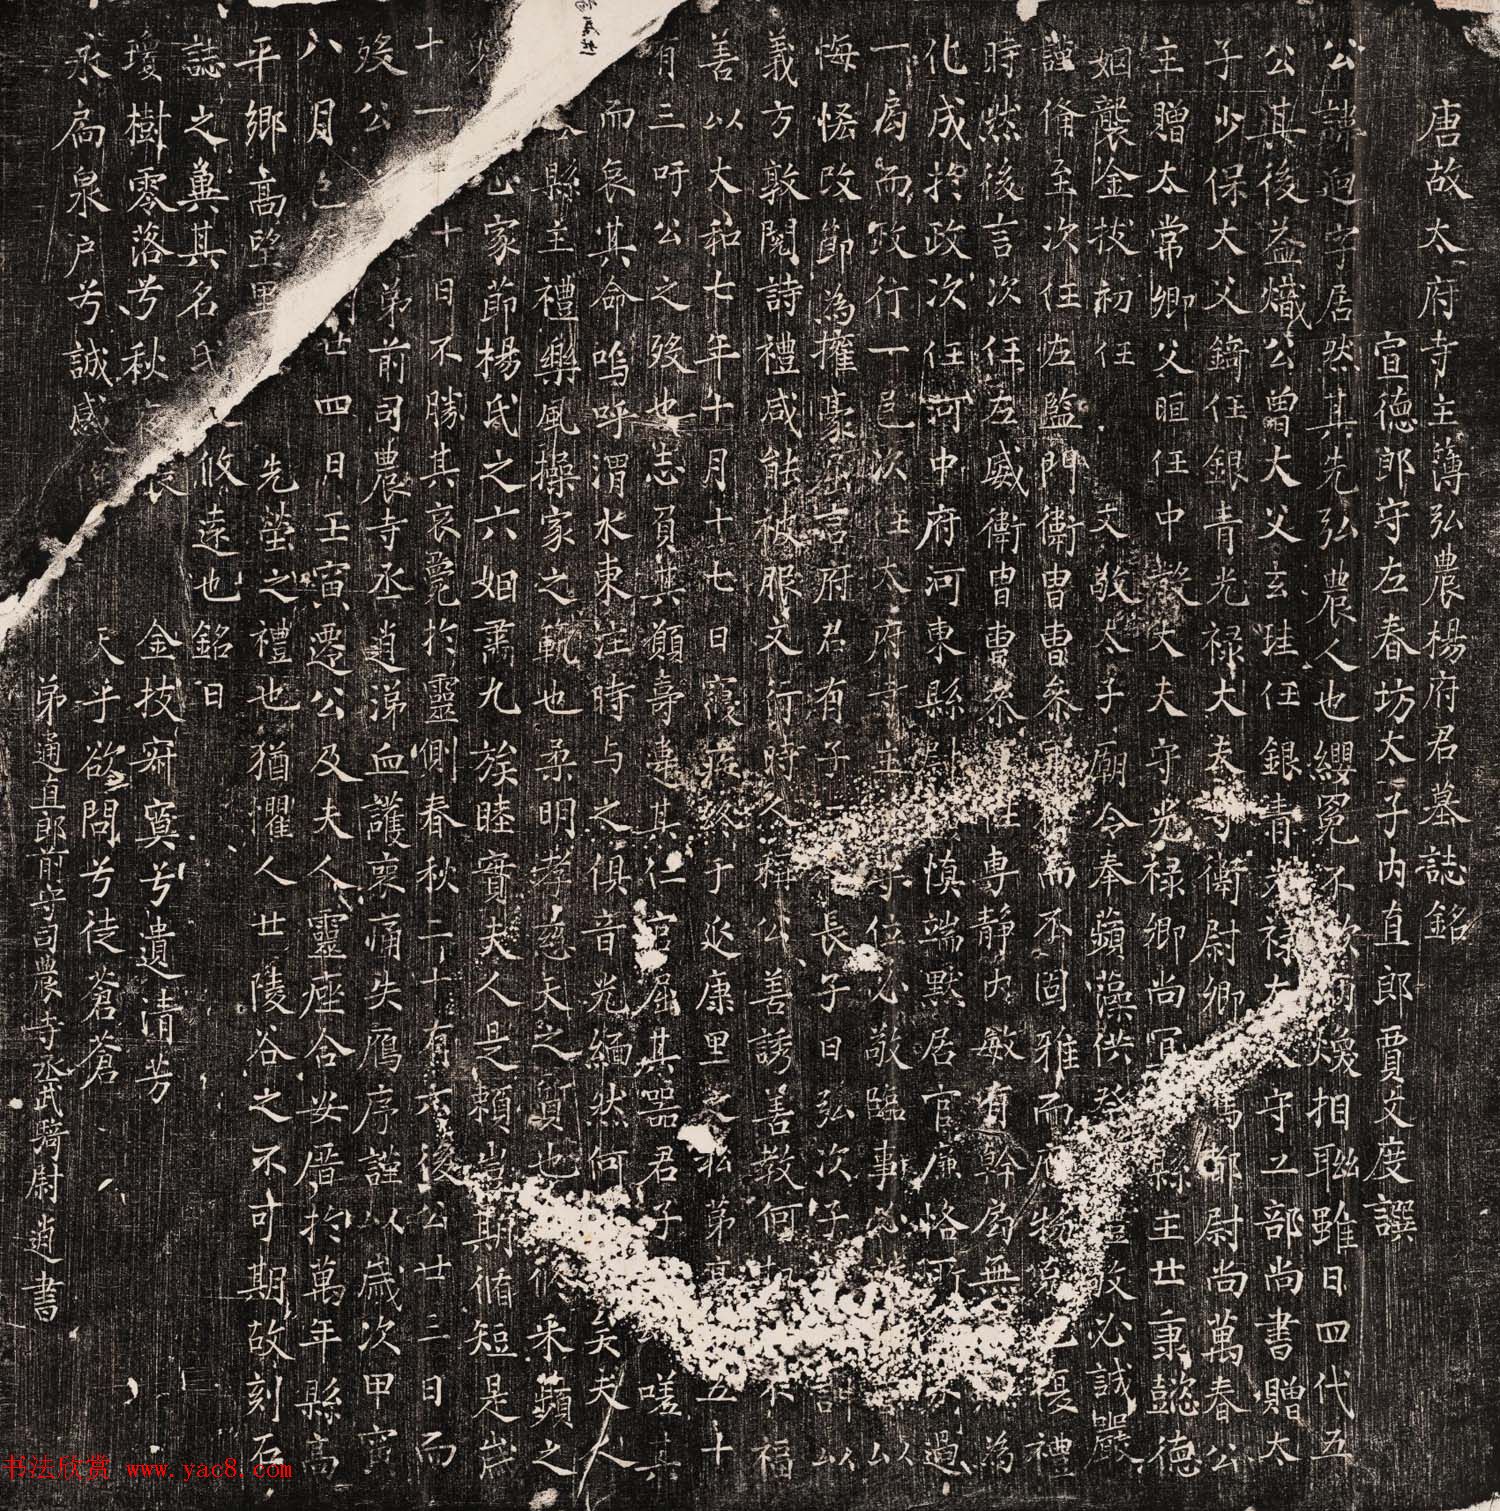 唐故太府寺主簿弘農楊府君墓誌銘
宣德郎守左春坊太子内直郎賈文度譔
公諱迥字居然其先弘農人也纓冕不 煥相聯雖日四代五
公其後益熾公曾大父玄珪任銀青光禄大夫守工部尚書贈太
子少保大父錡任銀青光禄大夫守衛尉卿 馬都尉尚萬春公
主贈太常卿父晅任中散大夫守光禄卿尚 縣主廿秉懿德
姻襲金 初任 文敬太子廟令奉蘋藻供 敬必誠嚴
謹脩至次任左監門衛曹參軍 而不固雅而 物 禮
時然後言次任左威衛曹參 任專静内敏有幹局無 為
化成於政次任河中府河東縣尉 慎端默居官廉恪所 過
一局而政行一邑次任太府寺主 守位必敬臨事 以
悔悋改節為權豪 言府君有子二 長子曰弘次子 以
義方敦閲詩禮咸能被服文行時人稱公善誘善教何 不福
善以大和七年十月十七日寝疾終于延康里之私第享 五十
有三吁公之殁也志負其願壽違其仁官屈其器君子 嗟其
而哀其命嗚呼渭水東注時与之俱音光緬然何 矣夫人
縣主禮樂風操家之軌也柔明孝慈天之質也 脩采蘋之
家節楊氏之六姻肅九族睦實夫人是賴豈期脩短是歲
十一 十日不勝其哀薨於靈側春秋二十有六後公廿三日而
殁公 弟前司農寺丞逍涕血護裏痛失鴈序謹以歲次甲寅
八月 廿四日壬寅遷公及夫人靈座合安厝於萬年縣高
平鄉高望里 先塋之禮也猶懼人廿陵谷之不可期故刻石
誌之兾其名氏 攸遠也銘曰
瓊樹零落兮秋 金技㝥寞兮遺清芳
永扃泉户兮誠感 天乎欲問兮徒蒼蒼
弟通直郎前守司農寺丞武騎尉逍書
书法欣赏 www.yac8.com